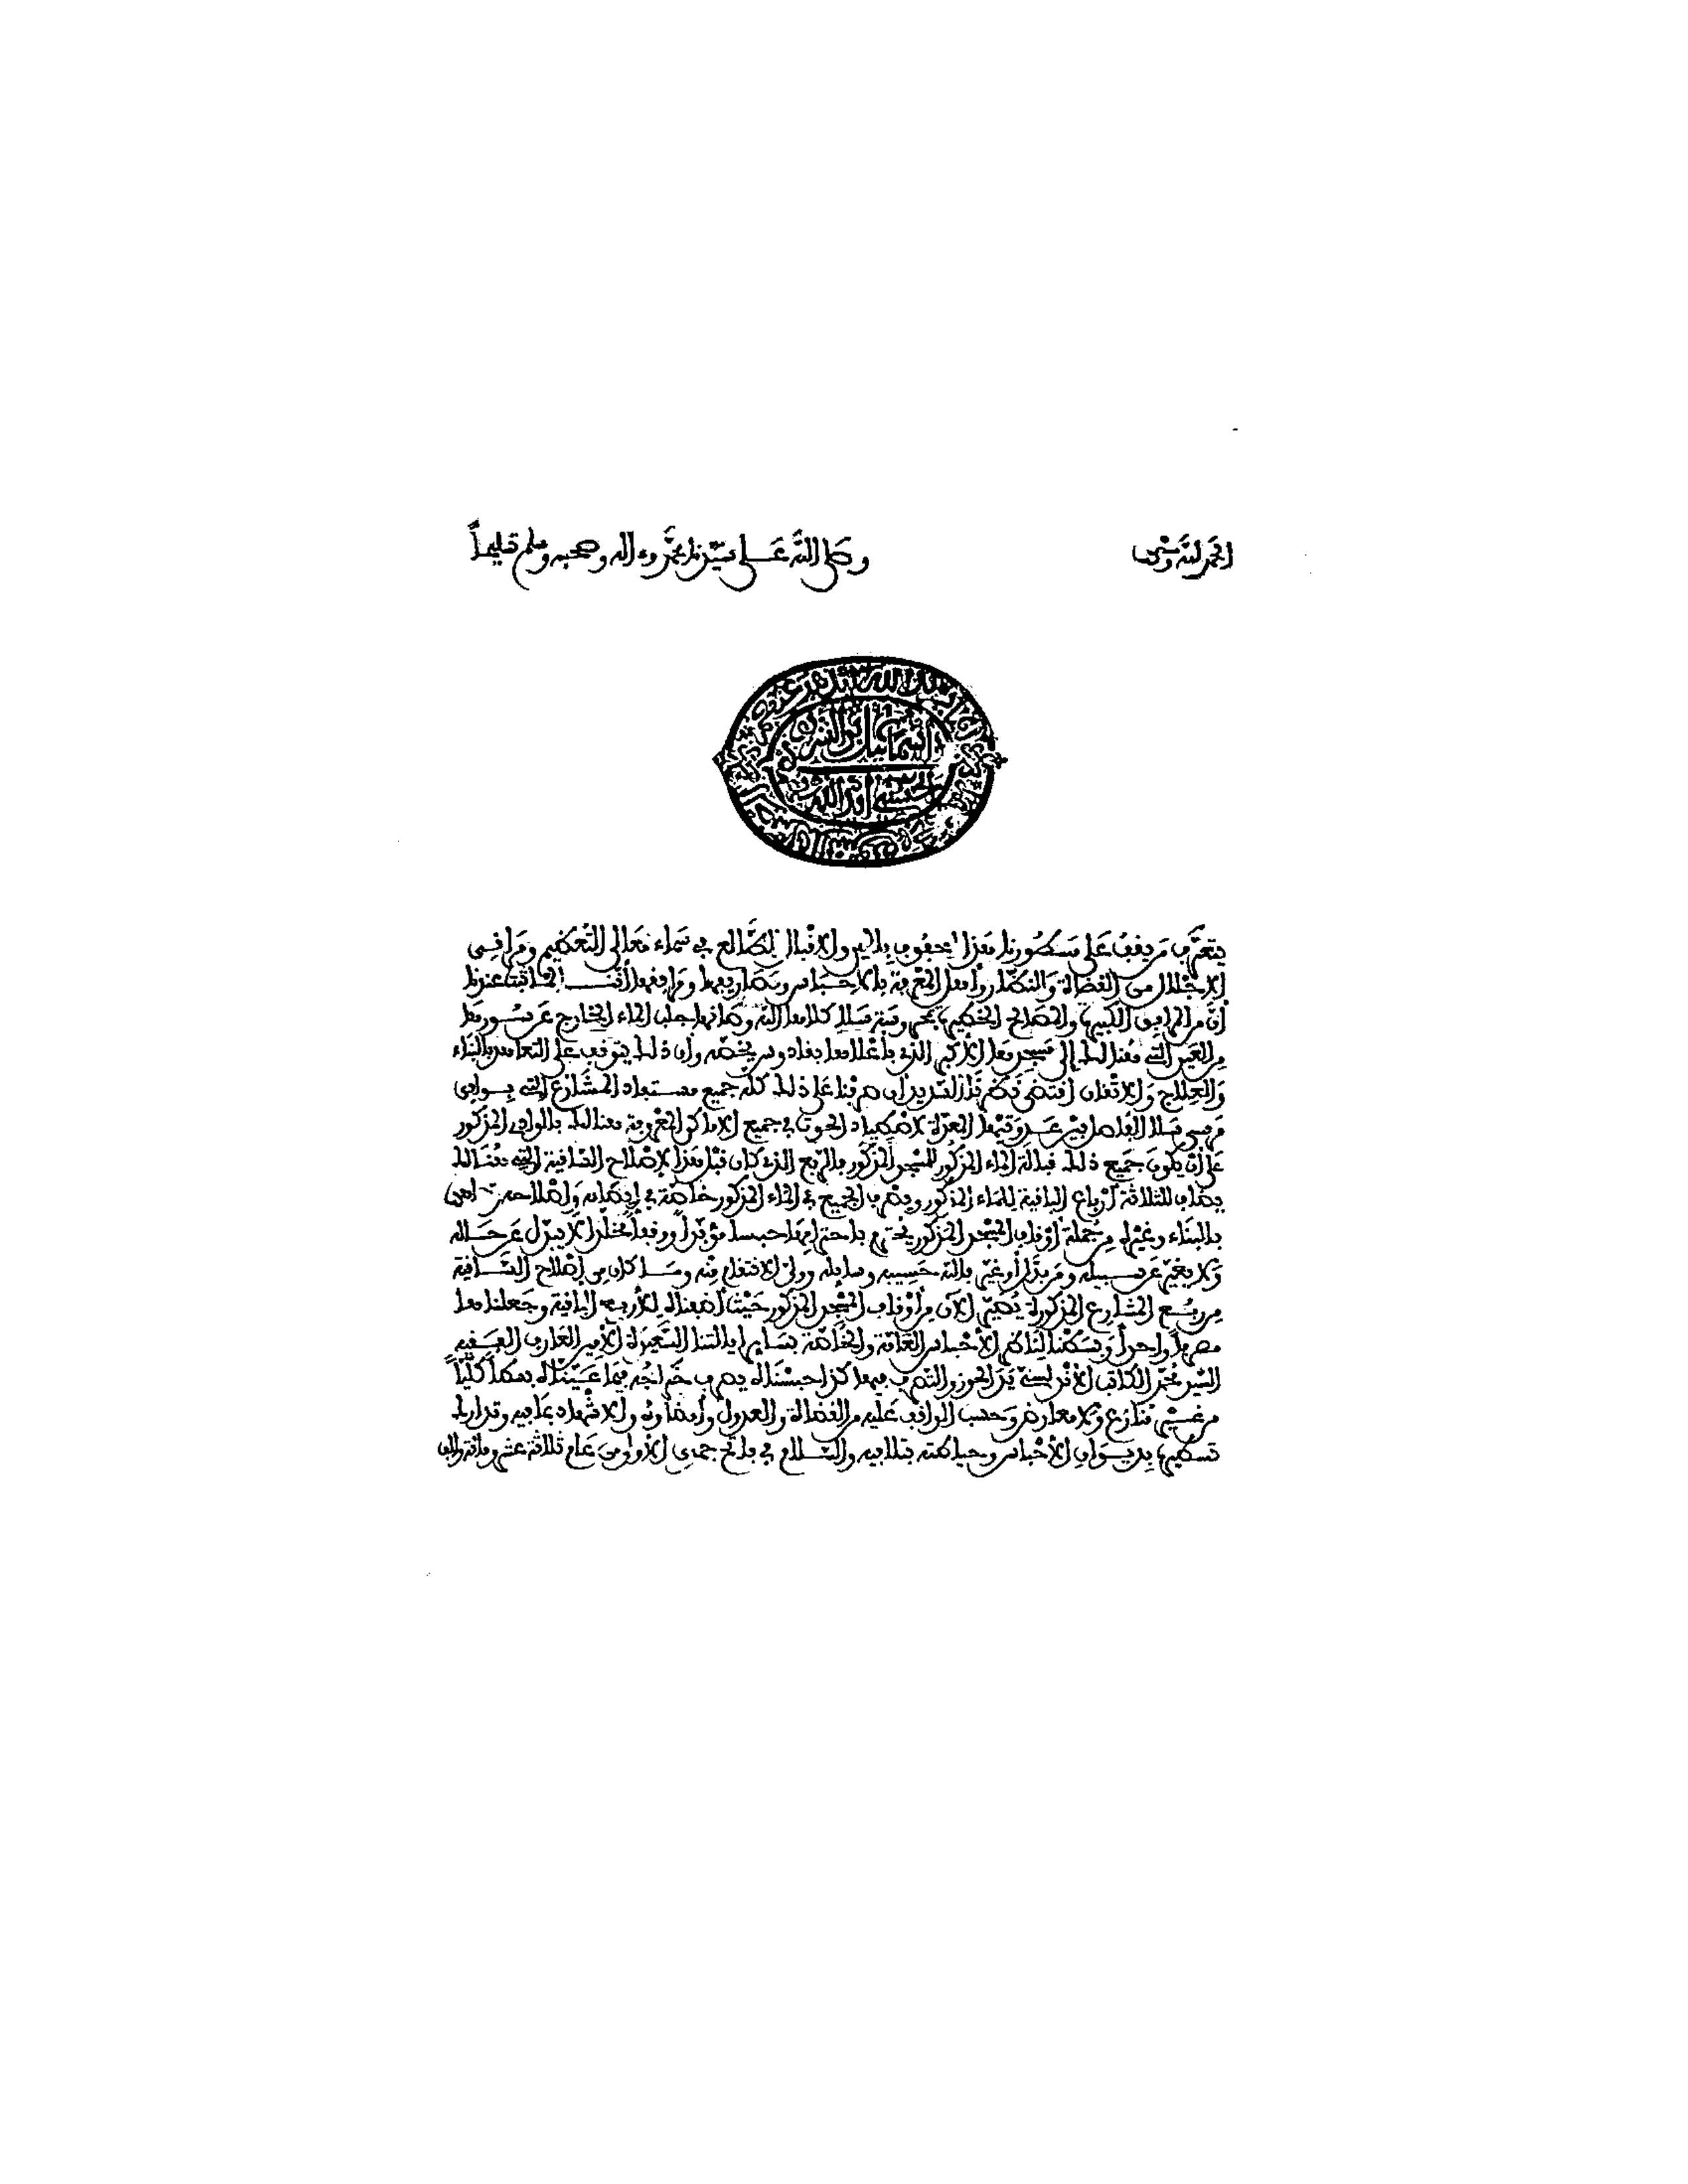 الحمد لله وحده
وصلى الله على سيدنا محمد وءاله وصحبه وسلم تسليما
اسماعيل بن الشريف
الحسني أيده الله
يتعرف من يقف على مسطورنا هذا المحفوف والاقبال الطالع في سماء معالي التعظيم ومراقي
الاجلال من القضاة والنظار وأهل المعرفة بالاحباس وتصاريفها ومرافقها أنه عندنا
أن من المرافق الكبيرة والمصالح الخطيرة بمحروسة سلا كلأها الله وصانها جلب الماء الخارج عن سورها
من العين التي هنالك إلى مسجدها الأكبر الذي يخصه وان ذلك يتوقف على التعاهد بالبناء
والعلاج والاتقان اقتضى نظرنا السديد أن صرفنا على ذلك كله جميع مستفاد المشارع التي بوادي
مرسى سلا الفاصل بين عدوتيها المعدة لاصطياد الحوت في جميع الاماكن المعروفة هنالك بالوادي المذكور
على أن يكون جميع ذلك قبالة الماء المذكور للمسجد المذكور والربع الذي كان قبل هذا لإصلاح الساقية التي هنالك
يضاف للثلاثة أرباع الباقية للماء المذكور ويصرف الجميع في الماء المذكور خاصة في إيصاله وإصلاحه
بالبناء وغيره من جملة أوقاف المسجد المذكور يحترم باحترامها حبسا مؤبدا ووقفا مخلدا لا يبدل عن حاله
ولا يغير عن سبيله ومن بدل أو غير فالله حسيبه وسايله وولي الانتقام منه وما كان من إصلاح الساقية
من ربع المشارع المذكورة يصير الآن من أوقاف المسجد المذكور حيث أضفناه للأربعة الباقية وجعلناها
مصرفا واحدا لناظر الأحباس العامة والخاصة بساير إيالتنا السعيدة الأمير العارف الفقيه
السيد محمد الكاتب الأندلسي يد الحوز والتصرف فيها كذا حبسناه يصرف خراجه فيما عيناه كليا
من غير منازع ولا معارض وحسب الواقف عليه من القضاة والعدول إمضاؤه والاشهاد بما فيه
تسطيره بديوان الأحباس والسلام في فاتح جمدى الأولى من عام ثلاثة عشر ومائة وألف